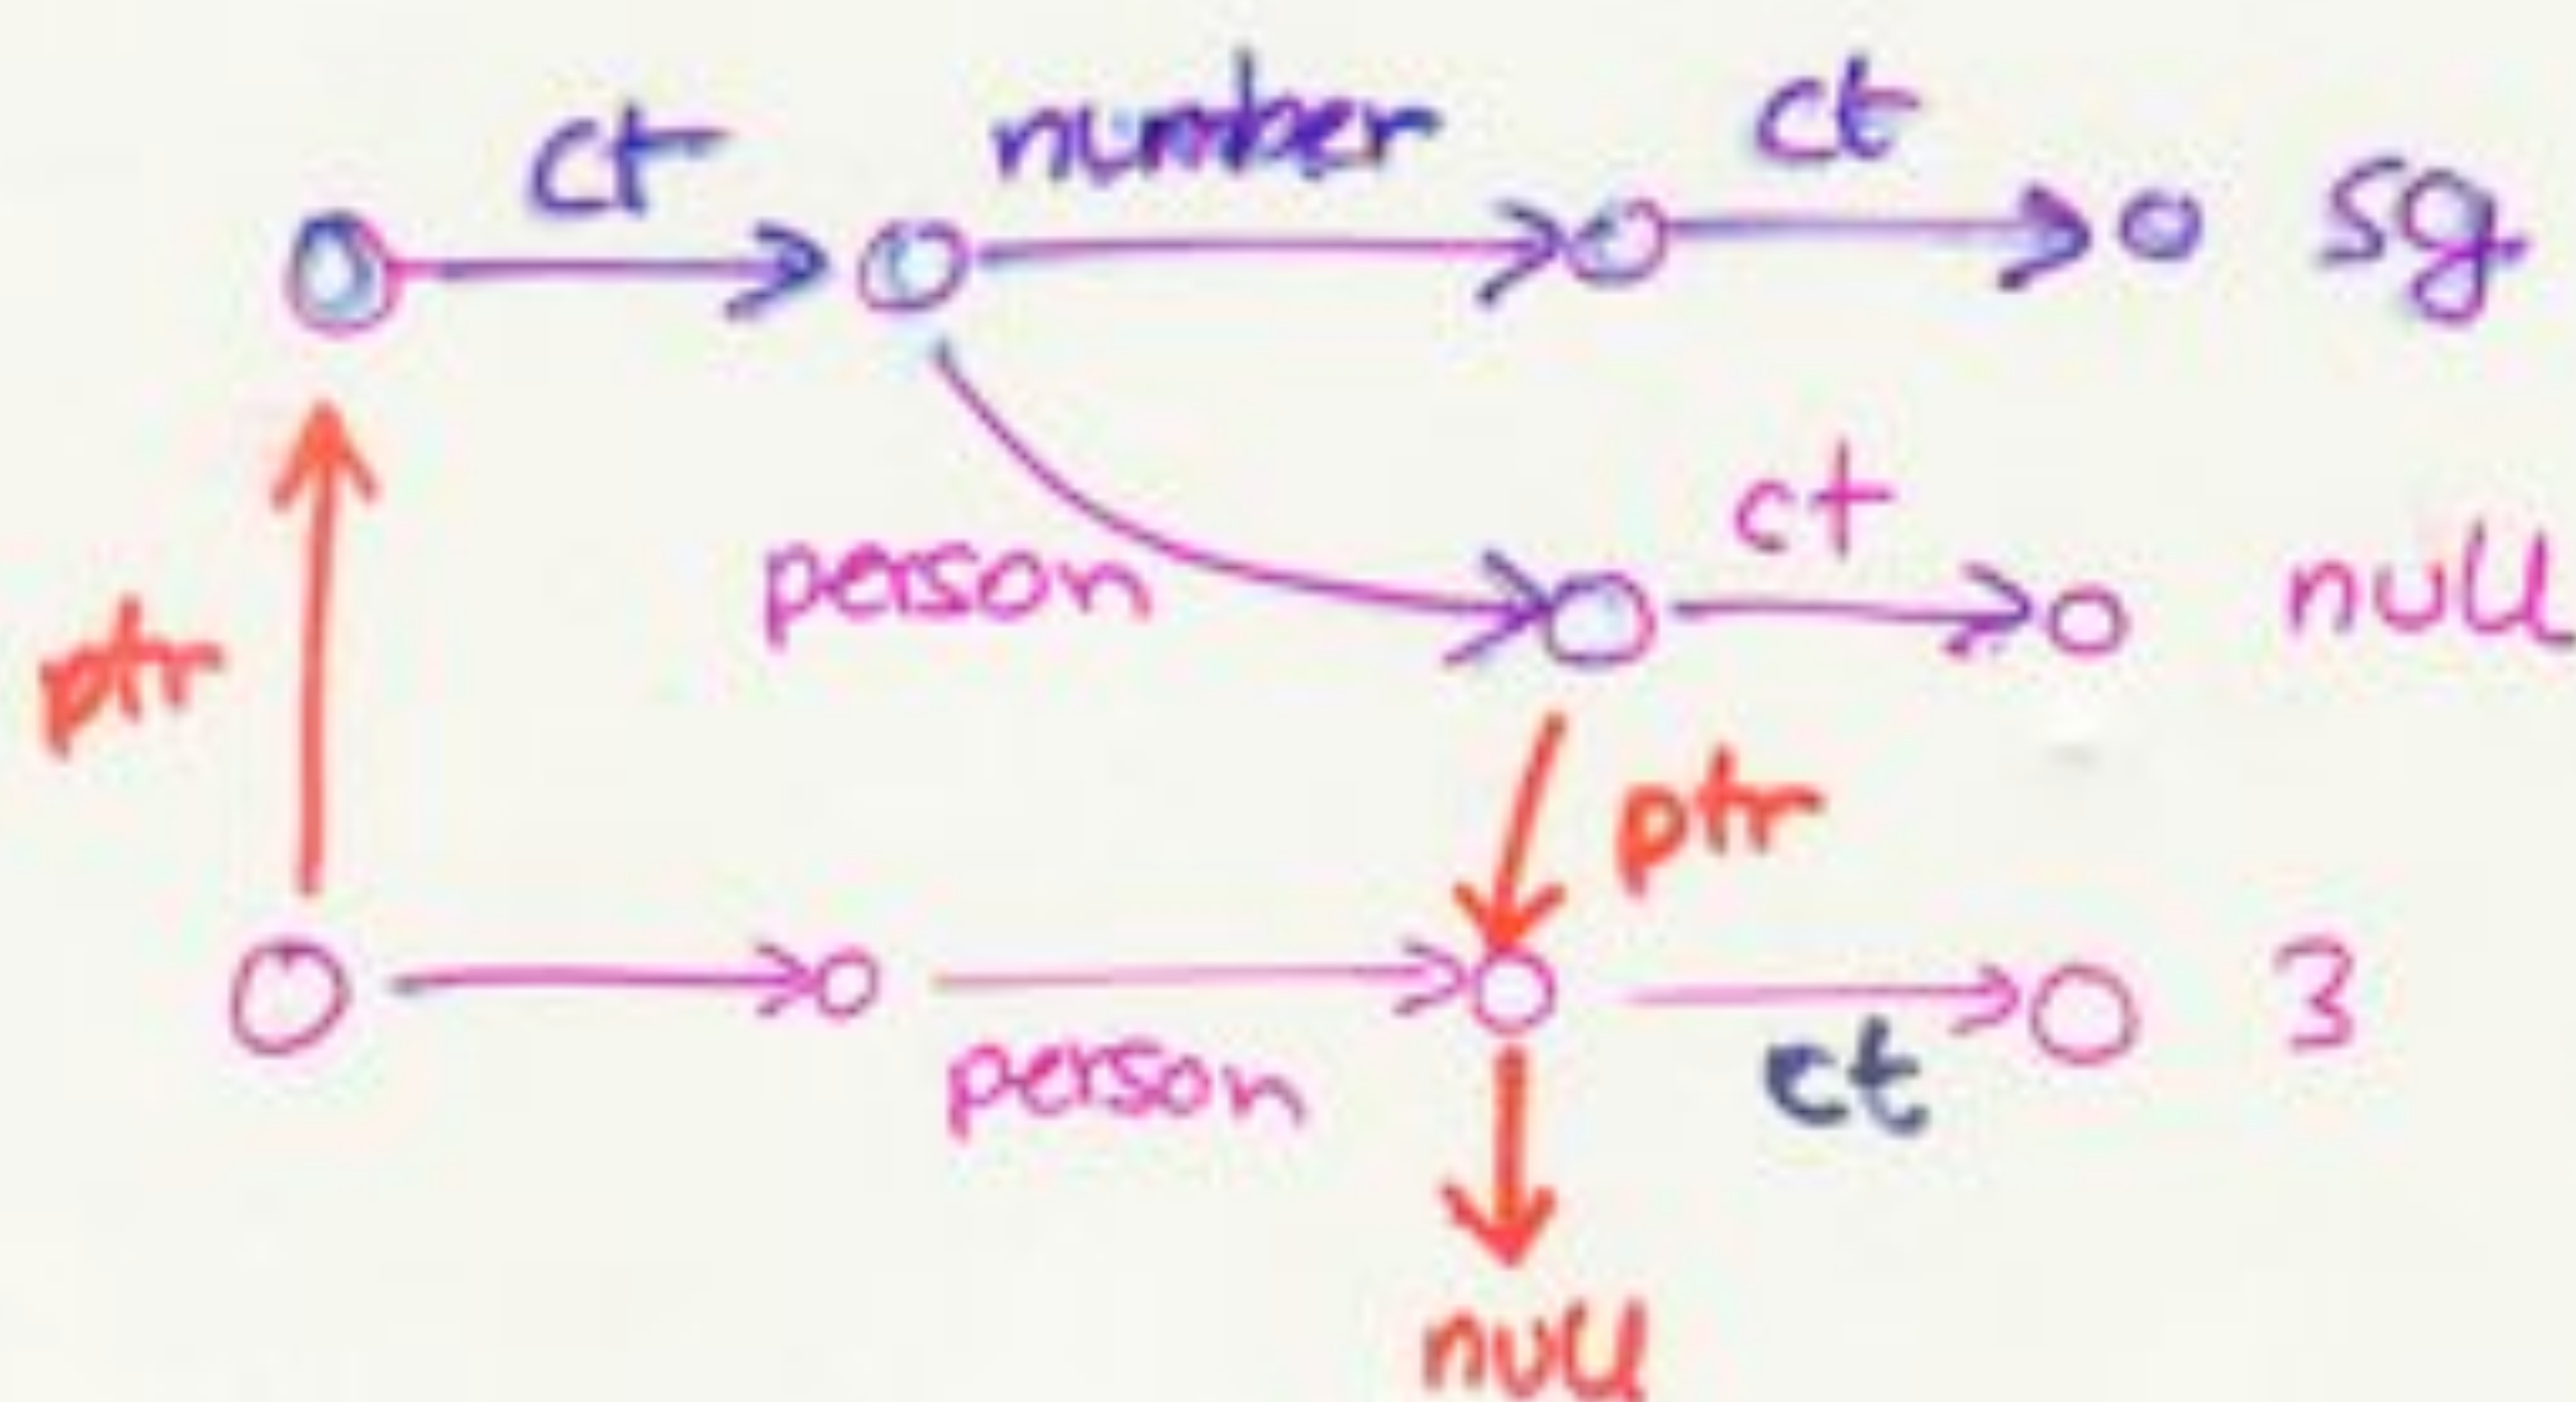 ct number ct sg
ct
person null
ptr
ptr
person ct 3
null